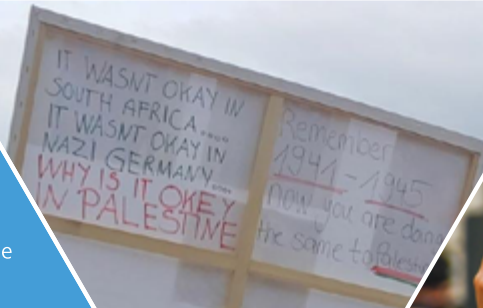 IT WASNT OKAY IN
SOUTH AFRICA....
IT WASNT OKAY IN
NAZI GERMANY....
WHY IS IT OKEY
IN PALESTINE
Remember
1941-1945
now you are doing
the same to Palestine
e